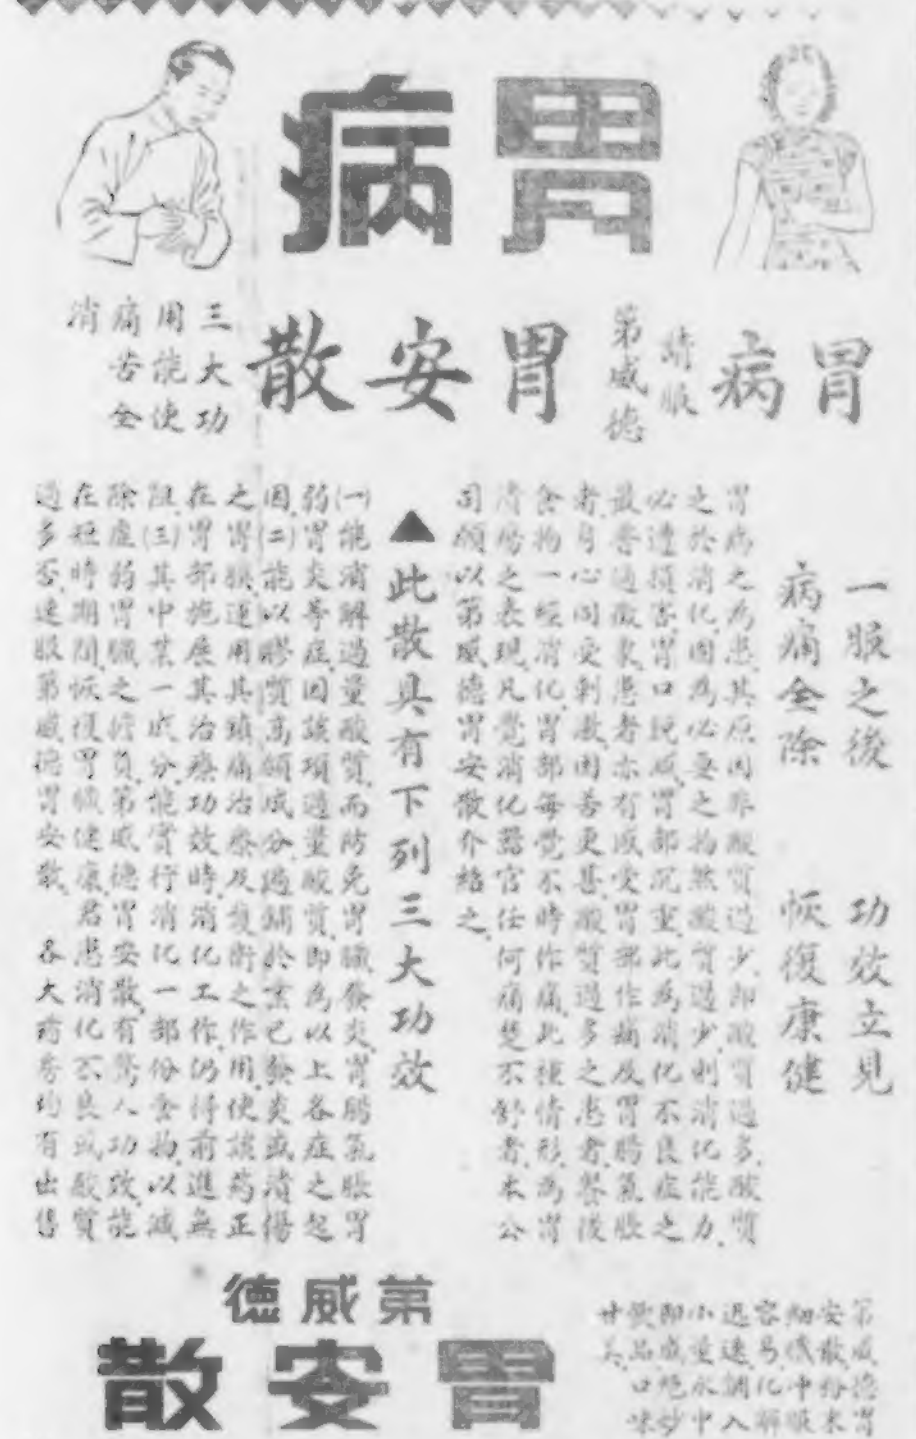 胃病
胃病
請服
第威德
胃安散
三大功
用能使
痛苦全
消
一服之後　功效立見
病痛全除　恢復康健
胃病之為患、其原因非酸質過少、即酸質過多、酸質
之於消化、固為必要之物、然酸質過少、則消化能力、
必遭損害、胃口銳減、胃部沉重、此為消化不良症之
最普通徵象、患者亦有感受胃部作痛及胃腸氣脹
者、身心同受刺激、困苦更甚、酸質過多之患者、餐後
食物一經消化、胃部每覺不時作痛、此種情形、為胃
潰瘍之表現、凡覺消化器官任何痛楚不舒者、本公
司願以第威德胃安散介紹之、
▲此散具有下列三大功效
(一)能消解過量酸質、而防免胃臟發炎、胃腸氣脹、胃
弱、胃炎等症、因該項過量酸質、即為以上各症之起
因、(二)能以膠質高嶺成分、遍鋪於業已發炎或潰傷
之胃膜、運用其鎮痛治療及護衛之作用、使該药正
在胃部施展其治療功效時、消化工作、仍得前進無
阻、(三)其中某一成分、能實行消化一部份食物、以減
除虛弱胃臟之擔負、第威德胃安散、有驚人功效、能
在短時期間、恢復胃臟健康、君患消化不良或酸質
過多否、速服第威德胃安散、　各大药房均有出售
第威德
胃安散
第威德胃
安散粉末
細膩中服
容易化解
迅速調入
小量水中
即成絕妙
飲品口味
甘美、